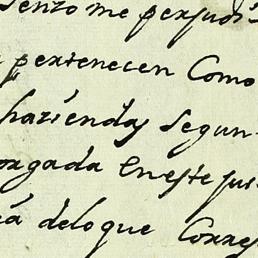 senzo me perjudi
pertenecen Como
haziendas Segun
orgada en este jui
rá delo que Corres